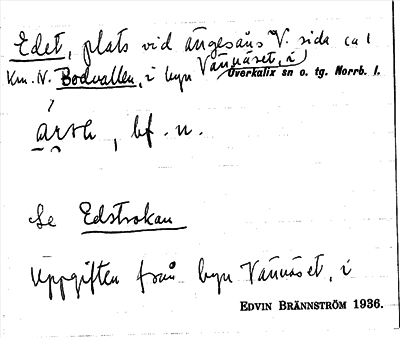 Edet, plats vid ängesåns V. sida ca 1
km. N. Bodvallen, i byn Vännäset, i
Överkalix sn o. tg. Norrb. l.
bf. n.
Se Edstrokan
Uppgiften från byn Vännäset, i
EDVIN BRÄNNSTRÖM 1936.